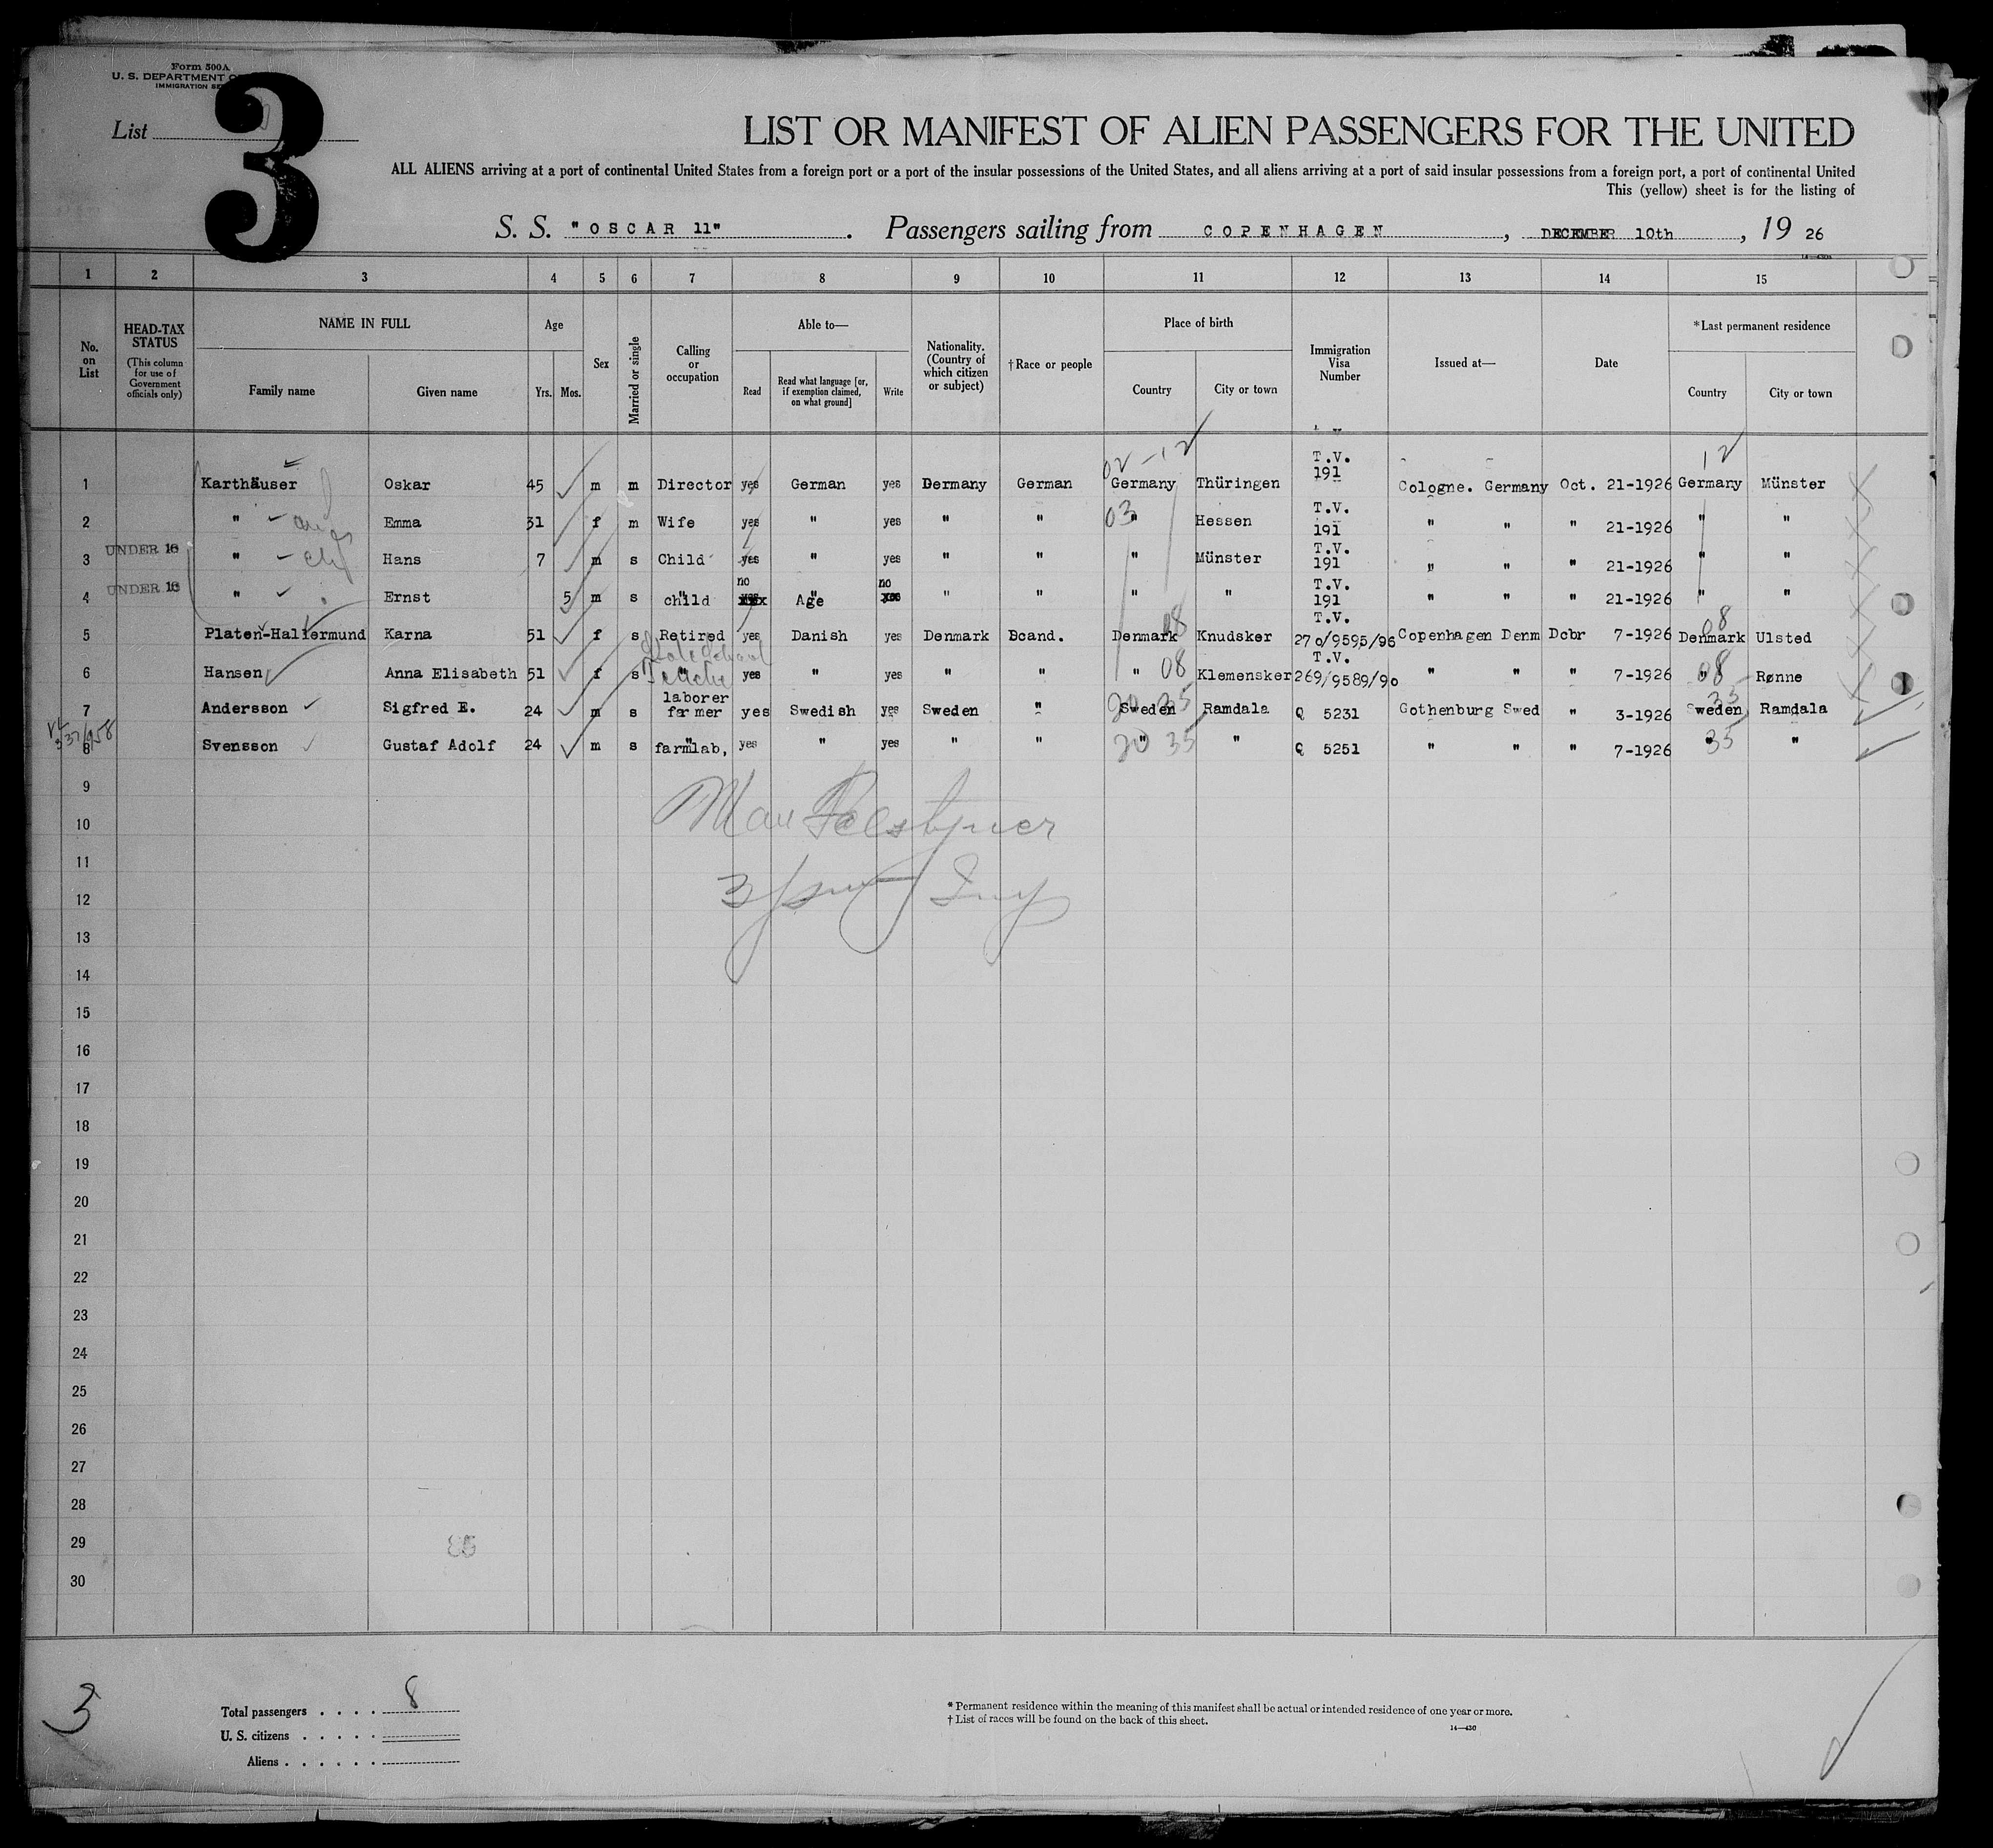 Form 500A
U. S. DEPARTMENT O
IMMIGRATION SE
List
3
LIST OR MANIFEST OF ALIEN PASSENGERS FOR THE UNITED
ALL ALIENS arriving at a port of continental United States from a foreign port or a port of the insular possessions of the United States, and all aliens arriving at a port of said insular possessions from a foreign port, a port of continental United
This (yellow) sheet is for the listing of
S. S. "OSCAR 11". Passengers sailing from COPENHAGEN, DECEMBER 10th, 19 26
1 2 3 4 5 6 7 8 9 10 11 12 13 14 15
No. on List
HEAD-TAX STATUS
(This column for use of Government officials only)
NAME IN FULL
Family name Given name
Age
Yrs. Mos.
Sex
Married or single
Calling or occupation
Able to—
Read
Read what language [or, if exemption claimed, on what ground]
Write
Nationality. (Country of which citizen or subject)
†Race or people
Place of birth
Country City or town
Immigration Visa Number
Issued at—
Date
*Last permanent residence
Country City or town
02-12 12
1 Karthäuser Oskar 45 m m Director yes German yes Dermany German Germany Thüringen T.V. 191 Cologne. Germany Oct. 21-1926 Germany Münster
2 " Emma 31 f m Wife yes " yes " " 03 " Hessen T.V. 191 " " " 21-1926 " "
UNDER 16
3 " Hans 7 m s Child yes " yes " " " Münster T.V. 191 " " " 21-1926 " "
UNDER 16
4 " Ernst 5 m s child " no Age " no " " " " T.V. 191 " " " 21-1926 " "
5 Platen-Hallermund Karna 51 f s Retired yes Danish yes Denmark Bcand. Denmark 08 Knudsker T.V. 270/9595/96 Copenhagen Denm Dcbr 7-1926 Denmark 08 Ulsted
6 Hansen Anna Elisabeth 51 f s " yes " yes " " " 08 Klemensker T.V. 269/9589/90 " " " 7-1926 " 08 Rønne
7 Andersson Sigfred E. 24 m s laborer farmer yes Swedish yes Sweden " Sweden 20 35 Ramdala Q 5231 Gothenburg Swed " 3-1926 Sweden 35 Ramdala
8 Svensson Gustaf Adolf 24 m s farmlab, " yes " yes " " " 20 35 " Q 5251 " " " 7-1926 " 35 "
9
10
11
12
13
14
15
16
17
18
19
20
21
22
23
24
25
26
27
28
29
30
3
Total passengers . . . . 8
U. S. citizens . . . . .
Aliens . . . . . .
* Permanent residence within the meaning of this manifest shall be actual or intended residence of one year or more.
† List of races will be found on the back of this sheet.
14—430